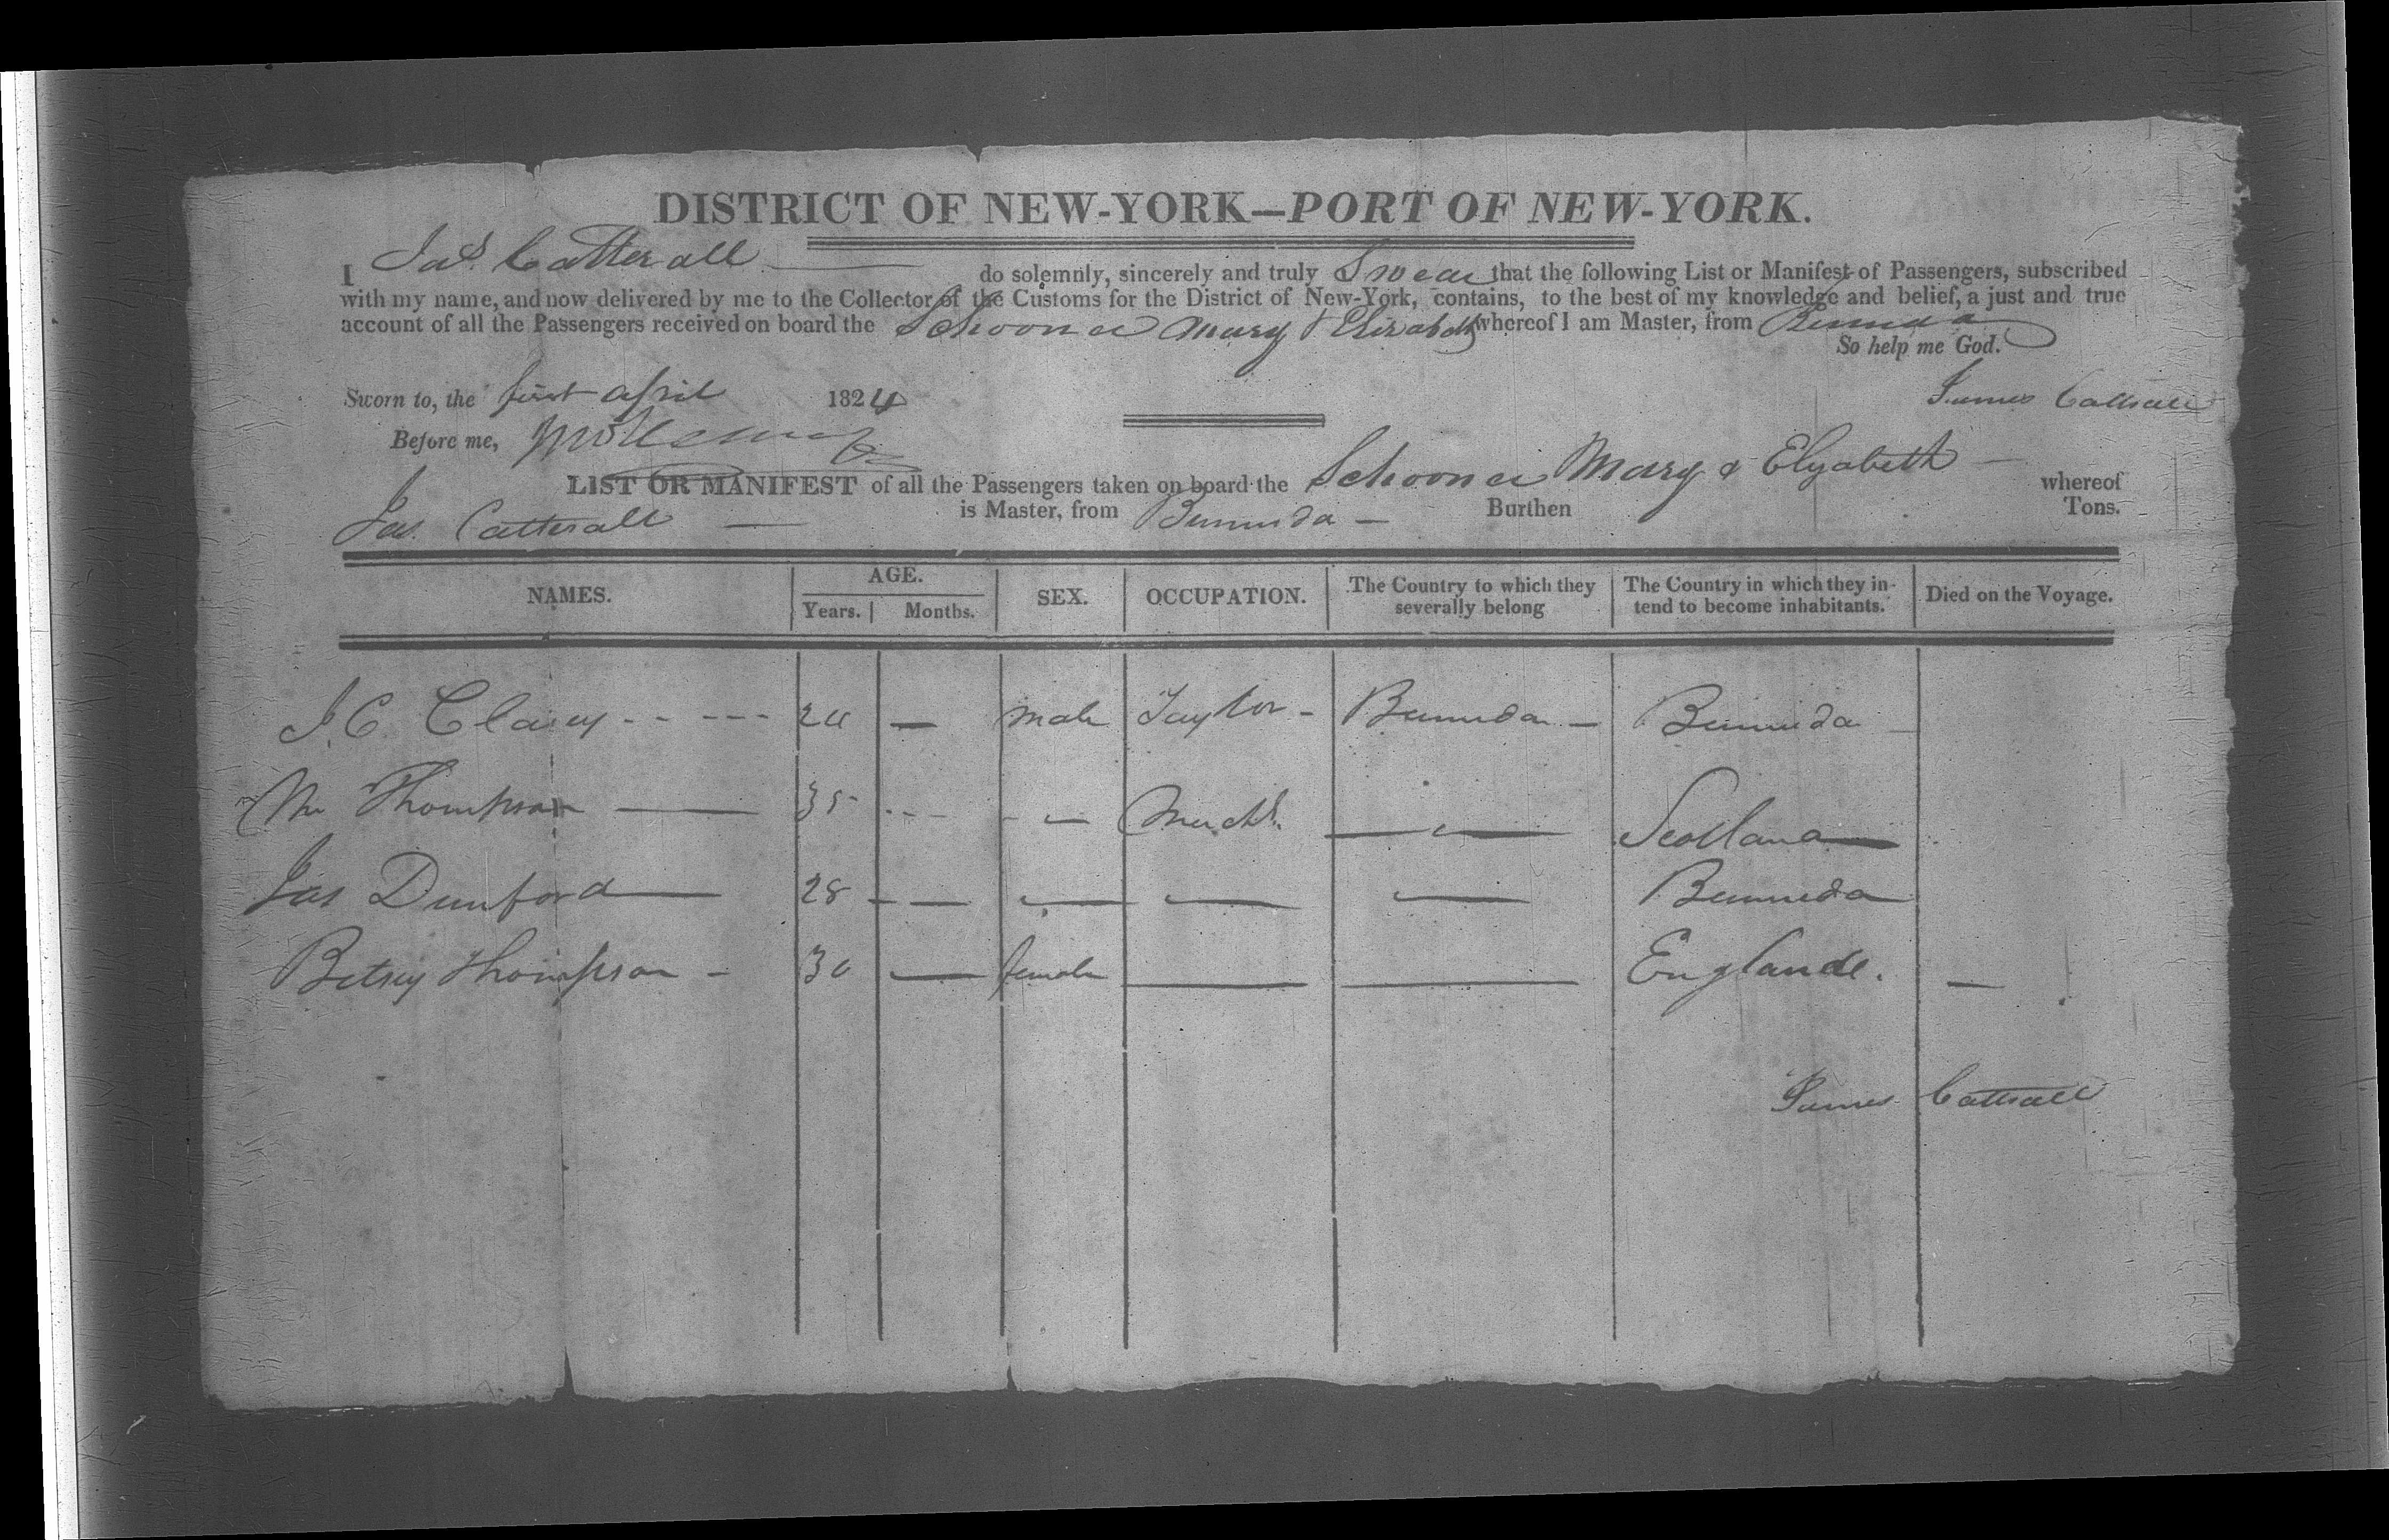 DISTRICT OF NEW-YORK—PORT OF NEW-YORK.
I Jas. Catterall do solemnly, sincerely and truly Swear that the following List or Manifest of Passengers, subscribed
with my name, and now delivered by me to the Collector of the Customs for the District of New-York, contains, to the best of my knowledge and belief, a just and true
account of all the Passengers received on board the Schooner Mary & Elizabeth whereof I am Master, from Bermuda
So help me God.
Sworn to, the first april 1824 James Catterall
Before me,
LIST OR MANIFEST of all the Passengers taken on board the Schooner Mary & Elizabeth — whereof
Jas. Catterall — is Master, from Bermuda — Burthen Tons.
NAMES. AGE. Years. Months. SEX. OCCUPATION. The Country to which they severally belong The Country in which they intend to become inhabitants. Died on the Voyage.
J. C. Clasey - - - - - 24 — male Taylor - Bermuda — Bermuda
Mr Thompson — 35 - - - - — Mercht. — Scotland —
Jas Dunford — 28 - — — — — Bermuda
Betsey Thompson - 30 — female — — Englande. —
James Catterall